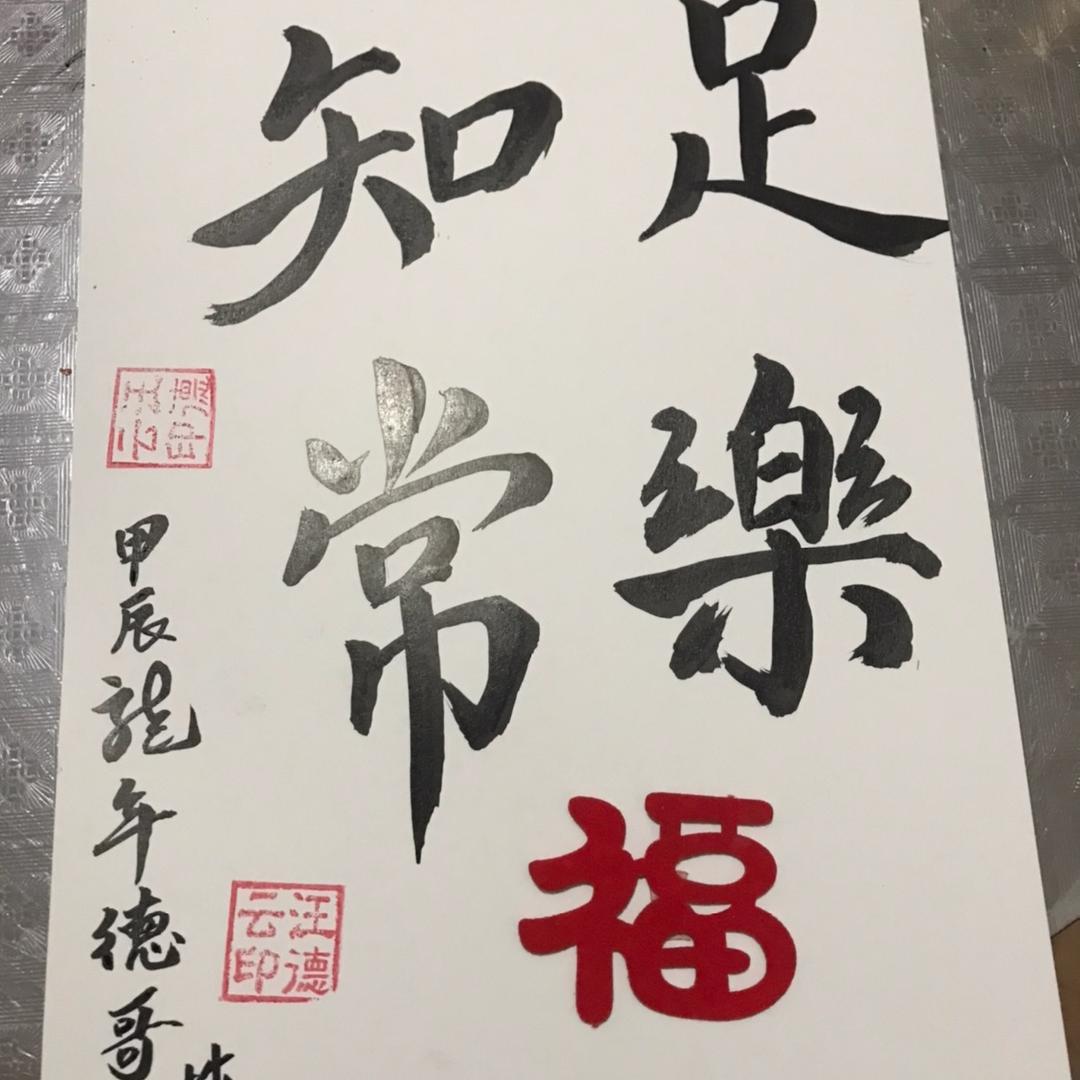 足樂
知常
福
甲辰龍年德哥
汪德
云印